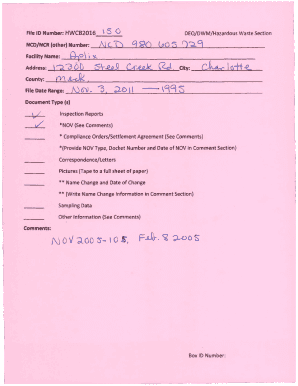 File ID Number: HWCB2016 150 DEQ/DWM/Hazardous Waste Section
NCD/NCR (other) Number: NCD 980 605 729
Facility Name: Aplix
Address: 12300 Steel Creek Rd. City: Charlotte
County: Meck.
File Date Range: Nov. 3, 2011 — 1995
Document Type (s)
Inspection Reports
*NOV (See Comments)
* Compliance Orders/Settlement Agreement (See Comments)
*(Provide NOV Type, Docket Number and Date of NOV in Comment Section)
Correspondence/Letters
Pictures (Tape to a full sheet of paper)
** Name Change and Date of Change
** (Write Name Change Information in Comment Section)
Sampling Data
Other Information (See Comments)
Comments:
NOV 2005-105, Feb. 8 2005
Box ID Number: